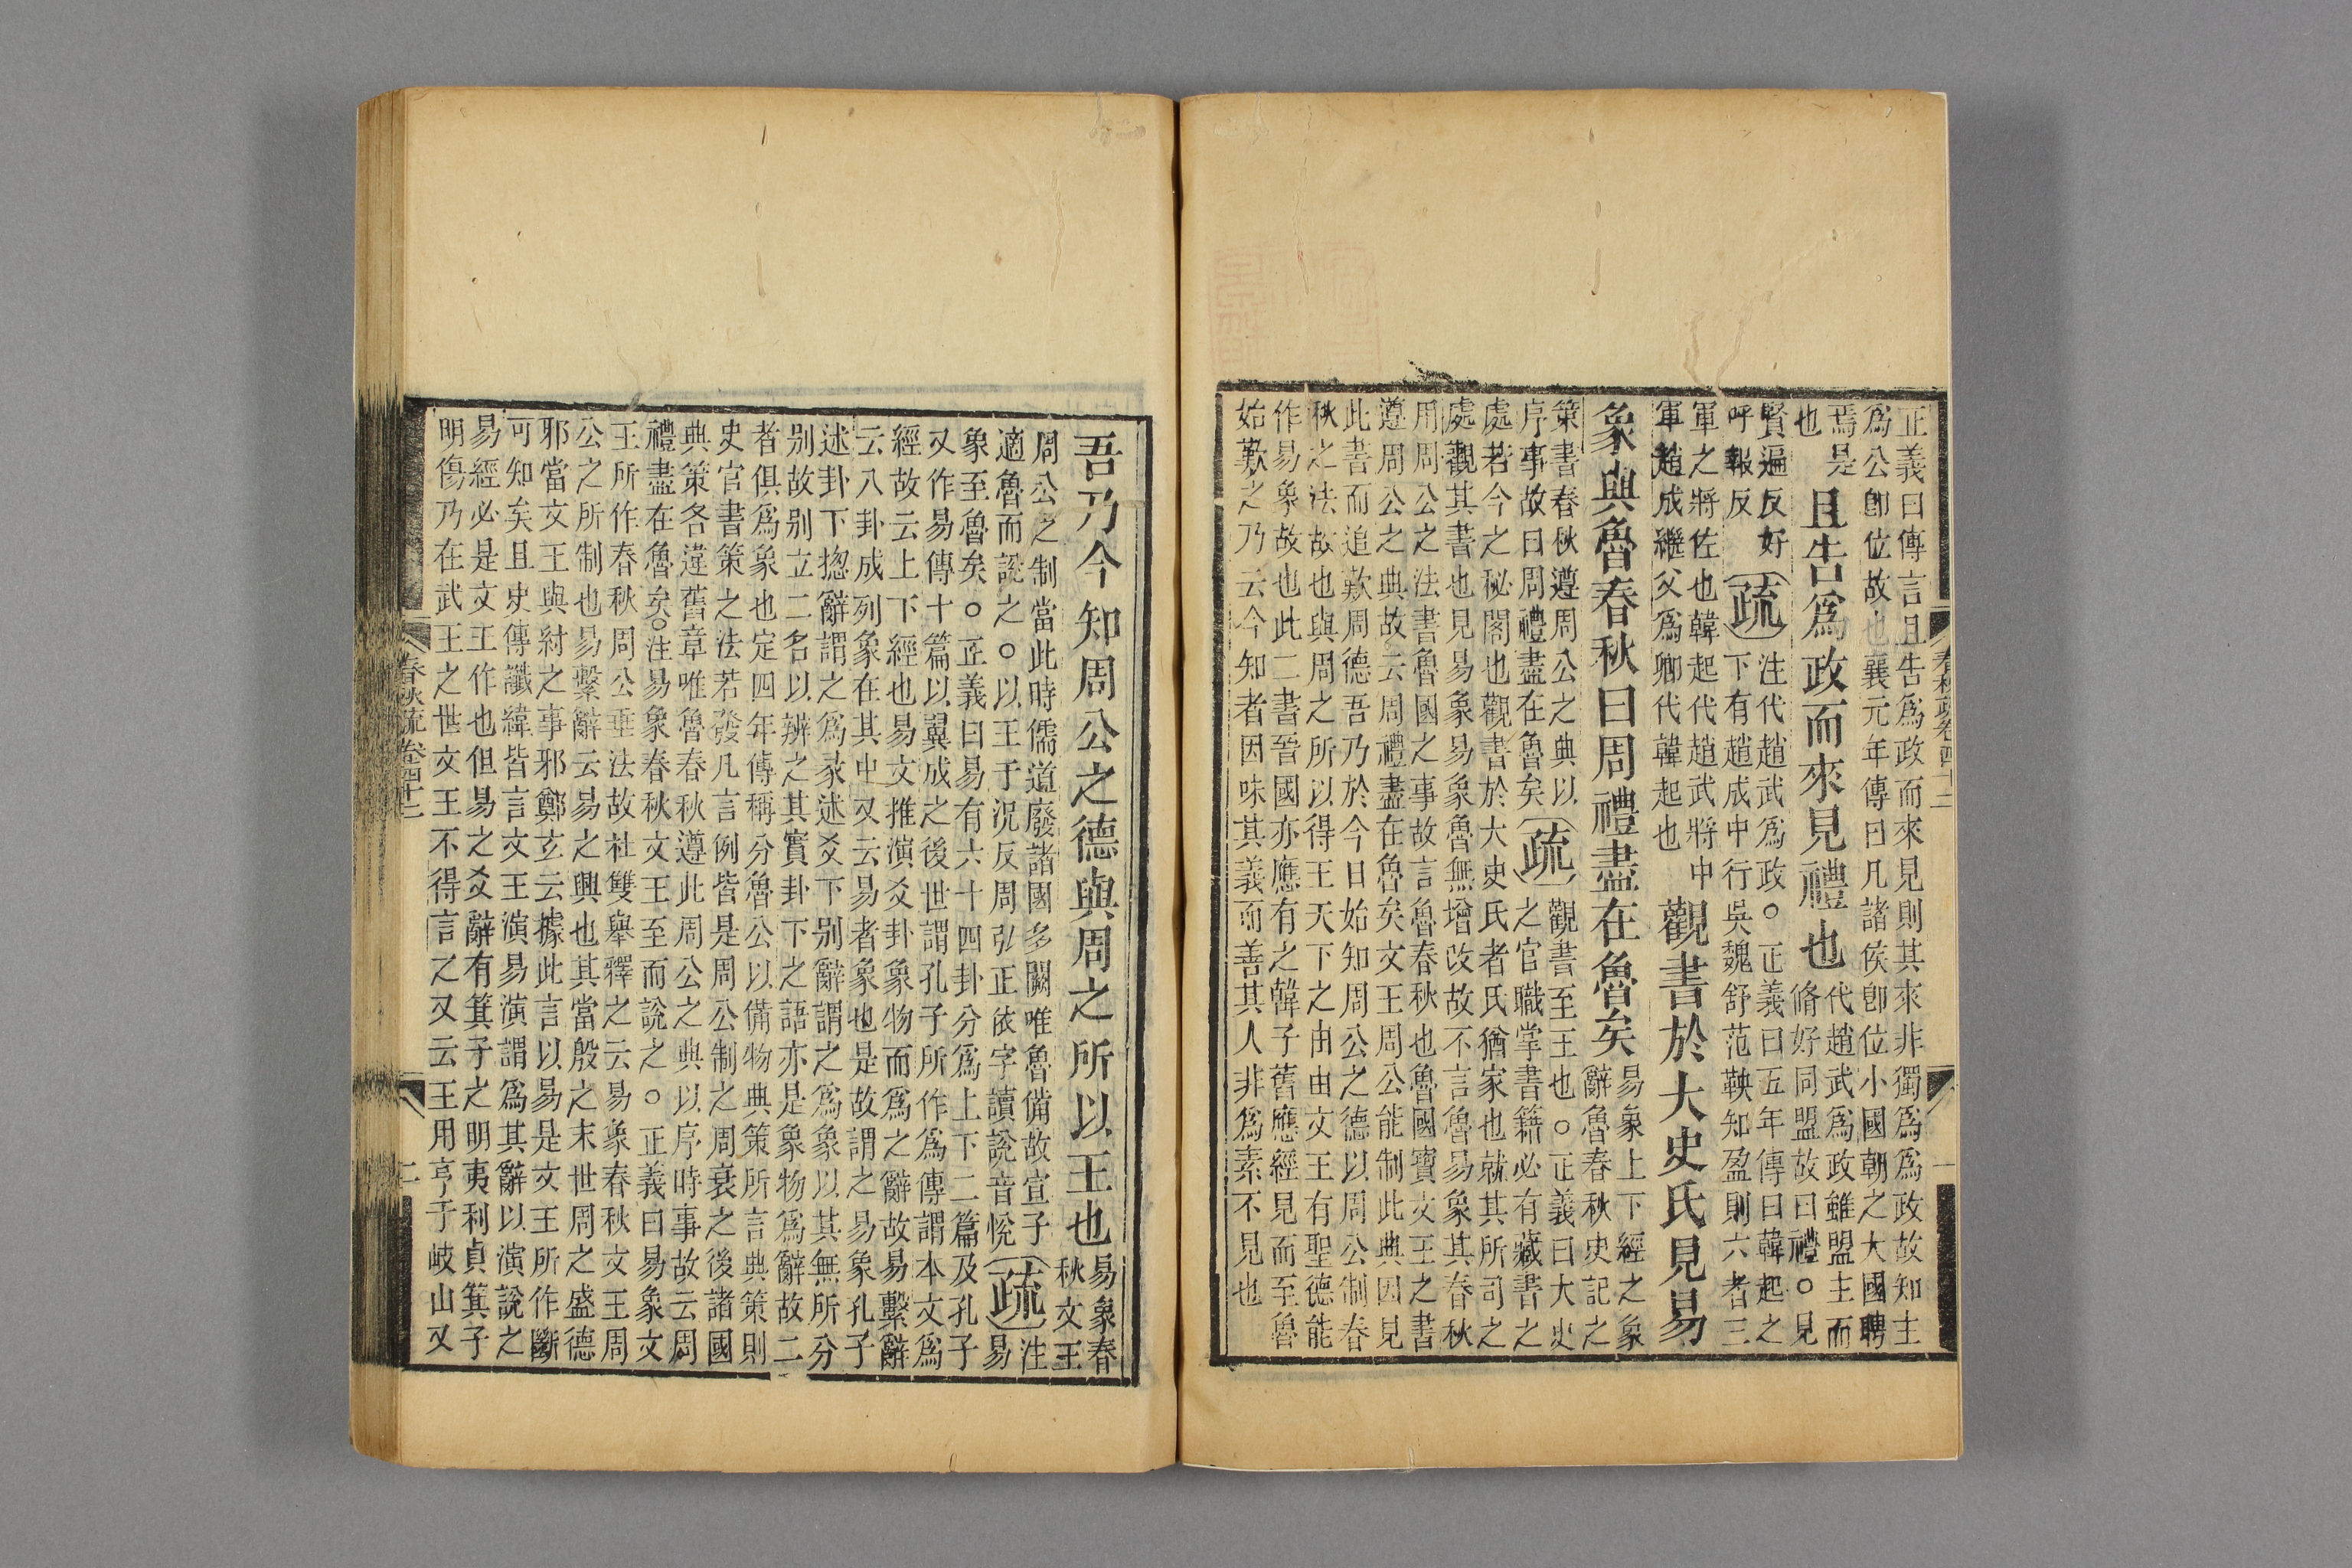 春秋疏卷四十二
一
正義曰傳言且告爲政而來見則其來非獨爲爲政故知主
爲公卽位故也襄元年傳曰凡諸侯卽位小國朝之大國聘
焉是
也
且告爲政而來見禮也
代趙武爲政雖盟主而
脩好同盟故曰禮○見
賢遍反好
呼報反
疏
注代趙武爲政○正義曰五年傳曰韓起之
下有趙成中行吳魏舒范鞅知盈則六者三
軍之將佐也韓起代趙武將中
軍趙成繼父爲卿代韓起也
觀書於大史氏見易
象與魯春秋曰周禮盡在魯矣
易象上下經之象
辭魯春秋史記之
策書春秋遵周公之典以
序事故曰周禮盡在魯矣
疏
觀書至王也○正義曰大史
之官職掌書籍必有藏書之
處若今之秘閣也觀書於大史氏者氏猶家也就其所司之
處觀其書也見易象易象魯無增改故不言魯易象其春秋
用周公之法書魯國之事故言魯春秋也魯國寶文王之書
遵周公之典故云周禮盡在魯矣文王周公能制此典因見
此書而追歎周德吾乃於今日始知周公之德以周公制春
秋之法故也與周之所以得王天下之由由文王有聖德能
作易象故也此二書晉國亦應有之韓子舊應經見而至魯
始歎之乃云今知者因味其義而善其人非爲素不見也
吾乃今知周公之德與周之所以王也
易象春
秋文王
周公之制當此時儒道廢諸國多闕唯魯備故宣子
適魯而說之○以王于況反周弘正依字讀說音悅
疏
注
易
象至魯矣○正義曰易有六十四卦分爲上下二篇及孔子
又作易傳十篇以翼成之後世謂孔子所作爲傳謂本文爲
經故云上下經也易文推演爻卦象物而爲之辭故易繫辭
云八卦成列象在其中又云易者象也是故謂之易象孔子
述卦下揔辭謂之爲彖述爻下別辭謂之爲象以其無所分
别故别立二名以辨之其實卦下之語亦是象物爲辭故二
者俱爲象也定四年傳稱分魯公以備物典策所言典策則
史官書策之法若發凡言例皆是周公制之周衰之後諸國
典策各違舊章唯魯春秋遵此周公之典以序時事故云周
禮盡在魯矣○注易象春秋文王至而說之○正義曰易象文
王所作春秋周公垂法故杜雙舉釋之云易象春秋文王周
公之所制也易繫辭云易之興也其當殷之末世周之盛德
邪當文王與紂之事邪鄭玄云據此言以易是文王所作斷
可知矣且史傳讖緯皆言文王演易演謂爲其辭以演說之
易經必是文王作也但易之爻辭有箕子之明夷利貞箕子
明傷乃在武王之世文王不得言之又云王用亨于岐山又
春秋疏卷四十二
二